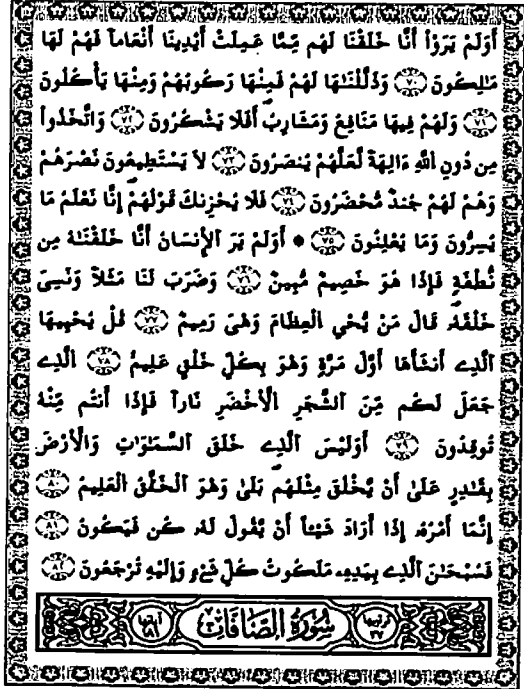 أَوَلَمْ يَرَوْاْ أَنَّا خَلَقْنَا لَهُم مِّمَّا عَمِلَتْ أَيْدِينَا أَنْعَٰماً فَهُمْ لَهَا
مَٰلِكُونَ ٧٠ وَذَلَّلْنَٰهَا لَهُمْ فَمِنْهَا رَكُوبُهُمْ وَمِنْهَا يَأْكُلُونَ
٧١ وَلَهُمْ فِيهَا مَنَٰفِعُ وَمَشَارِبُ أَفَلَا يَشْكُرُونَ ٧٢ وَاتَّخَذُواْ
مِن دُونِ اللَّهِ ءَالِهَةً لَّعَلَّهُمْ يُنصَرُونَ ٧٣ لَا يَسْتَطِيعُونَ نَصْرَهُمْ
وَهُمْ لَهُمْ جُندٌ مُّحْضَرُونَ ٧٤ فَلَا يُحْزِنكَ قَوْلُهُمْ إِنَّا نَعْلَمُ مَا
يُسِرُّونَ وَمَا يُعْلِنُونَ ٧٥ * أَوَلَمْ يَرَ الْإِنسَانُ أَنَّا خَلَقْنَٰهُ مِن
نُّطْفَةٍ فَإِذَا هُوَ خَصِيمٌ مُّبِينٌ ٧٦ وَضَرَبَ لَنَا مَثَلًا وَنَسِىَ
خَلْقَهُۥ قَالَ مَنْ يُّحْيِ الْعِظَٰمَ وَهْىَ رَمِيمٌ ٧٧ قُلْ يُحْيِيهَا
اَلَّذِے أَنشَأَهَا أَوَّلَ مَرَّةٍ وَهْوَ بِكُلِّ خَلْقٍ عَلِيمٌ ٧٨ اَلَّذِے
جَعَلَ لَكُم مِّنَ اَلشَّجَرِ اِلْأَخْضَرِ نَاراً فَإِذَا أَنتُم مِّنْهُ
تُوقِدُونَ ٧٩ أَوَلَيْسَ اَلَّذِے خَلَقَ اَلسَّمَٰوَٰتِ وَالْأَرْضَ
بِقَٰدِرٍ عَلَىٰ أَنْ يَّخْلُقَ مِثْلَهُم بَلَىٰ وَهْوَ اَلْخَلَّٰقُ الْعَلِيمُ ٨٠
إِنَّمَا أَمْرُهُۥ إِذَا أَرَادَ شَيْـًٔا أَنْ يَّقُولَ لَهُۥ كُن فَيَكُونُ ٨١
فَسُبْحَٰنَ اَلَّذِے بِيَدِهِۦ مَلَكُوتُ كُلِّ شَےْءٍ وَإِلَيْهِ تُرْجَعُونَ ٨٢
ترتيبها ٣٧ سُورَةُ الصَّافَّاتِ آياتها